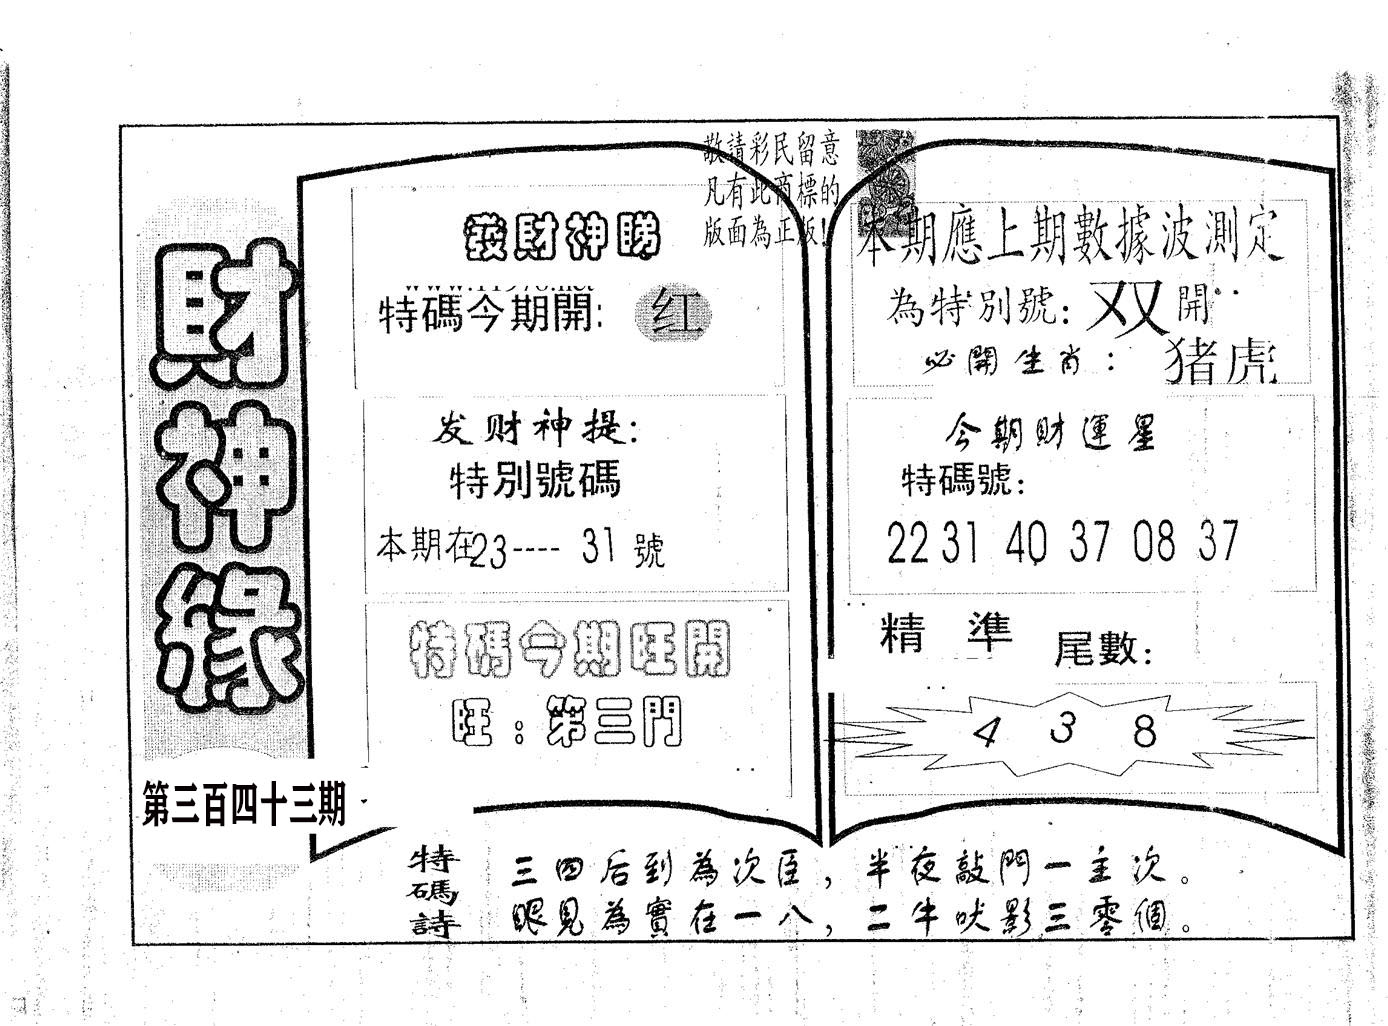 財神緣
第三百四十三期
敬請彩民留意
凡有此商標的
版面為正版!
發財神睇
特碼今期開:红
发财神提:
特別號碼
本期在23----31號
特碼今期旺開
旺:第三門
本期應上期數據波測定
為特別號:双開
必開生肖:猪虎
今期財運星
特碼號:
22 31 40 37 08 37
精準尾數:
4 3 8
特碼詩
三四后到為次臣,半夜敲門一主次。
眼見為實在一八,二牛吠影三零個。